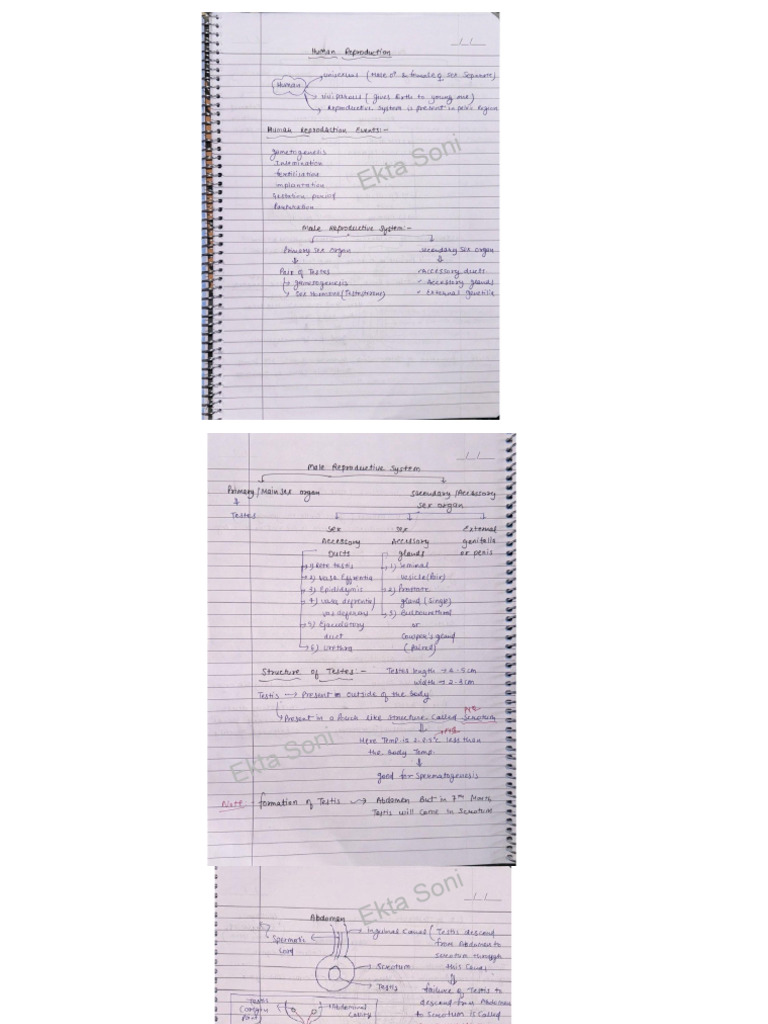 Human Reproduction
Unisexual (Male ♂ & female ♀ sex separate)
Human
Viviparous (gives Birth to young one)
Reproductive System is present in pelvic Region
Human Reproduction Events:-
Gametogenesis
Insemination
fertilisation
implantation
Gestation period
Parturition
Male Reproductive System:-
Primary sex organ secondary sex organ
Pair of Testes Accessory ducts
gametogenesis Accessory glands
Sex Hormone (Testosterone) External genitalia
Ekta Soni
Male Reproductive System
Primary/Main sex organ Secondary/Accessory
sex organ
Testes
sex sex External
Accessory Accessory genitalia
Ducts glands or penis
1) Rete testis 1) Seminal
2) Vasa Efferentia vesicle (Pair)
3) Epididymis 2) Prostate
4) vasa deferentia/ gland (single)
vas deferens 3) Bulbourethral
5) Ejaculatory or
duct Cowper's gland
6) Urethra (Paired)
Structure of Testes:- Testes length → 4-5 cm
width → 2-3 cm
Testis → Present in outside of the body
Present in a Pouch like structure called scrotum
Here Temp. is 2-2.5°C less than
the body Temp.
good for spermatogenesis
Ekta Soni
Note formation of Testis → Abdomen But in 7th Month
Testis will come in scrotum
Ekta Soni
Abdomen
Inguinal Canal (Testis descend
Spermatic from Abdomen to
Cord scrotum through
Scrotum this Canal
Testis failure of Testis to
Testis Abdominal descend from Abdomen
Cavity to scrotum is called